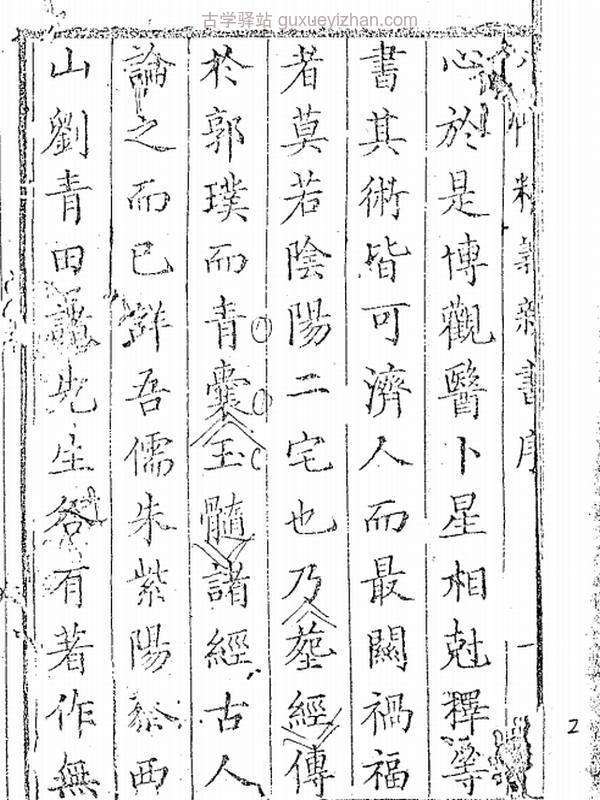 古学驿站 guxueyizhan.com
精
新書序
一
心於是博觀醫卜星相尅擇等
書其術皆可濟人而最關禍福
者莫若陰陽二宅也乃塟經傳
於郭璞而青囊玉髓諸經古人
論之而已詳吾儒朱紫陽蔡西
山劉青田諸先生各有著作無
2